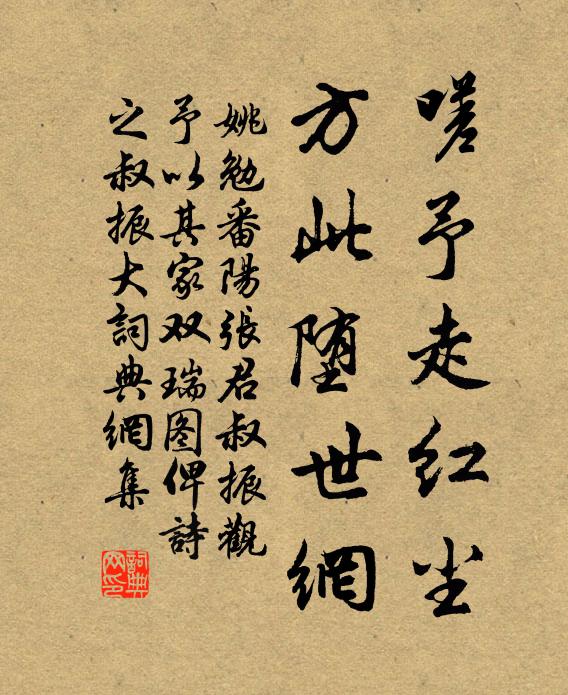 嗟予走红尘
方此堕世網
姚勉番陽張君叔振觀
予以其家双瑞图俾詩
之叔振大詞典網集
詞典网印